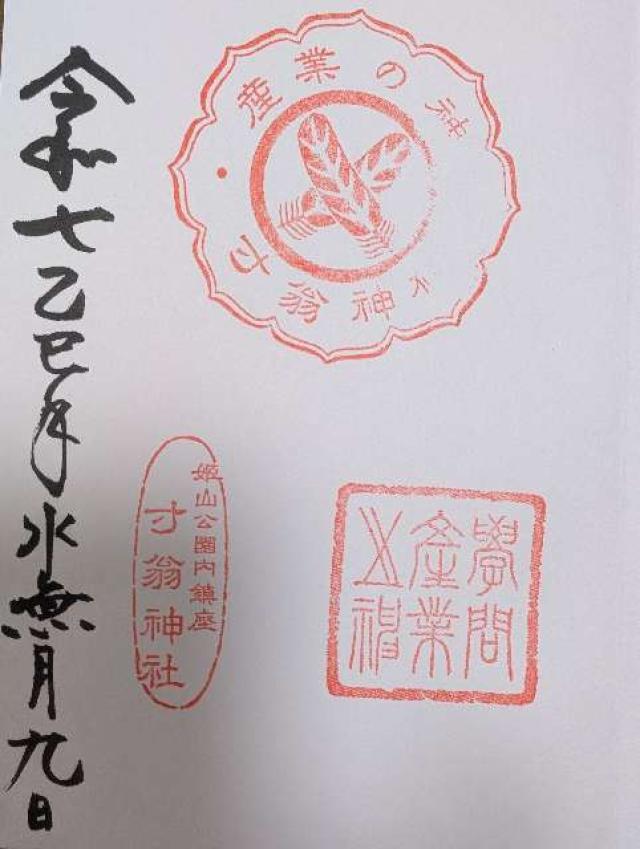 産業の神
寸翁神社
學問
産業
之神
姫山公園内鎮座
寸翁神社
令和七乙巳年水無月九日